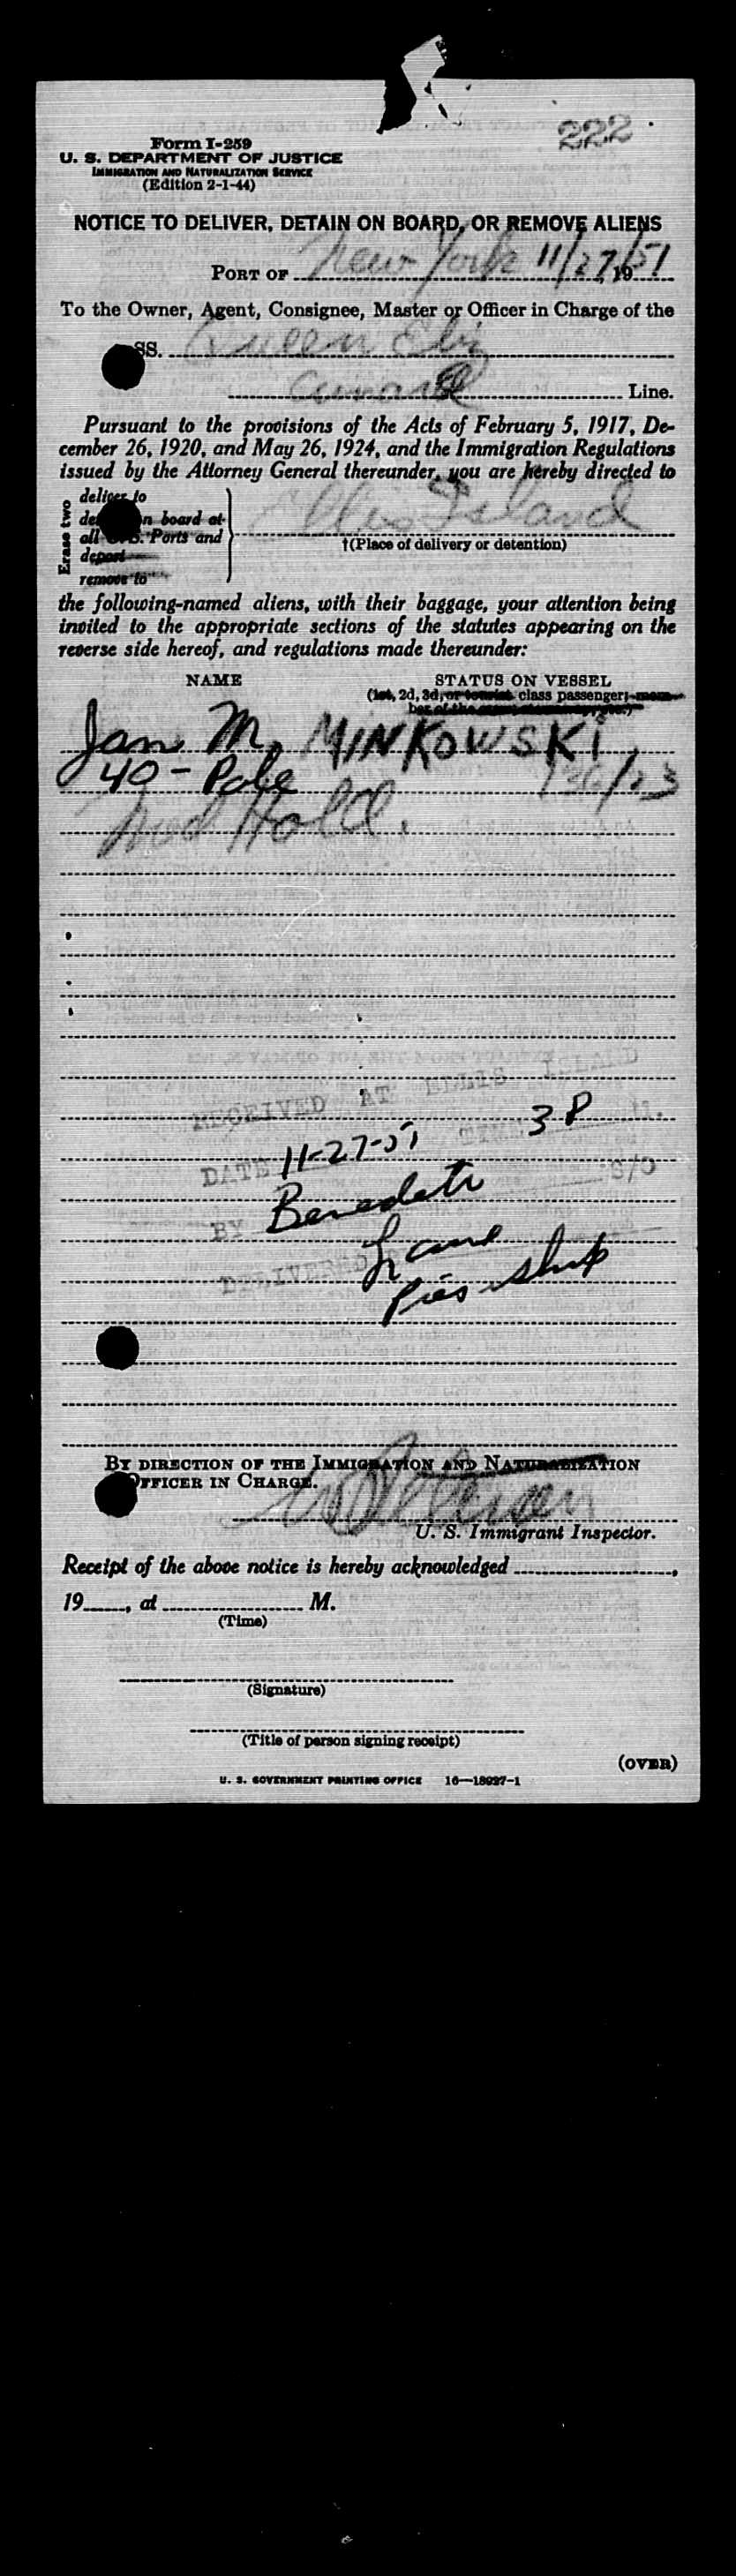 222
Form I-259
U. S. DEPARTMENT OF JUSTICE
IMMIGRATION AND NATURALIZATION SERVICE
(Edition 2-1-44)
NOTICE TO DELIVER, DETAIN ON BOARD, OR REMOVE ALIENS
PORT OF New York 11/27, 1951
To the Owner, Agent, Consignee, Master or Officer in Charge of the
SS. Queen Eliz
Cunard Line.
Pursuant to the provisions of the Acts of February 5, 1917, De-
cember 26, 1920, and May 26, 1924, and the Immigration Regulations
issued by the Attorney General thereunder, you are hereby directed to
Erase two
deliver to
on board at
all U. S. Ports and
deport
remove to
Ellis Island
†(Place of delivery or detention)
the following-named aliens, with their baggage, your attention being
invited to the appropriate sections of the statutes appearing on the
reverse side hereof, and regulations made thereunder:
NAME STATUS ON VESSEL
(1st, 2d, 3d, or tourist class passenger; mem-
ber of the
Jan M. MINKOWSKI
40 - Pole 136/23
Med Hold.
RECEIVED AT ELLIS ISLAND
DATE 11-27-51 TIME 3 P M.
BY Benedetti S/O
DELIVERED
ship
BY DIRECTION OF THE IMMIGRATION AND NATURALIZATION
OFFICER IN CHARGE.
U. S. Immigrant Inspector.
Receipt of the above notice is hereby acknowledged ,
19 , at M.
(Time)
(Signature)
(Title of person signing receipt)
(OVER)
U. S. GOVERNMENT PRINTING OFFICE 16—18027-1